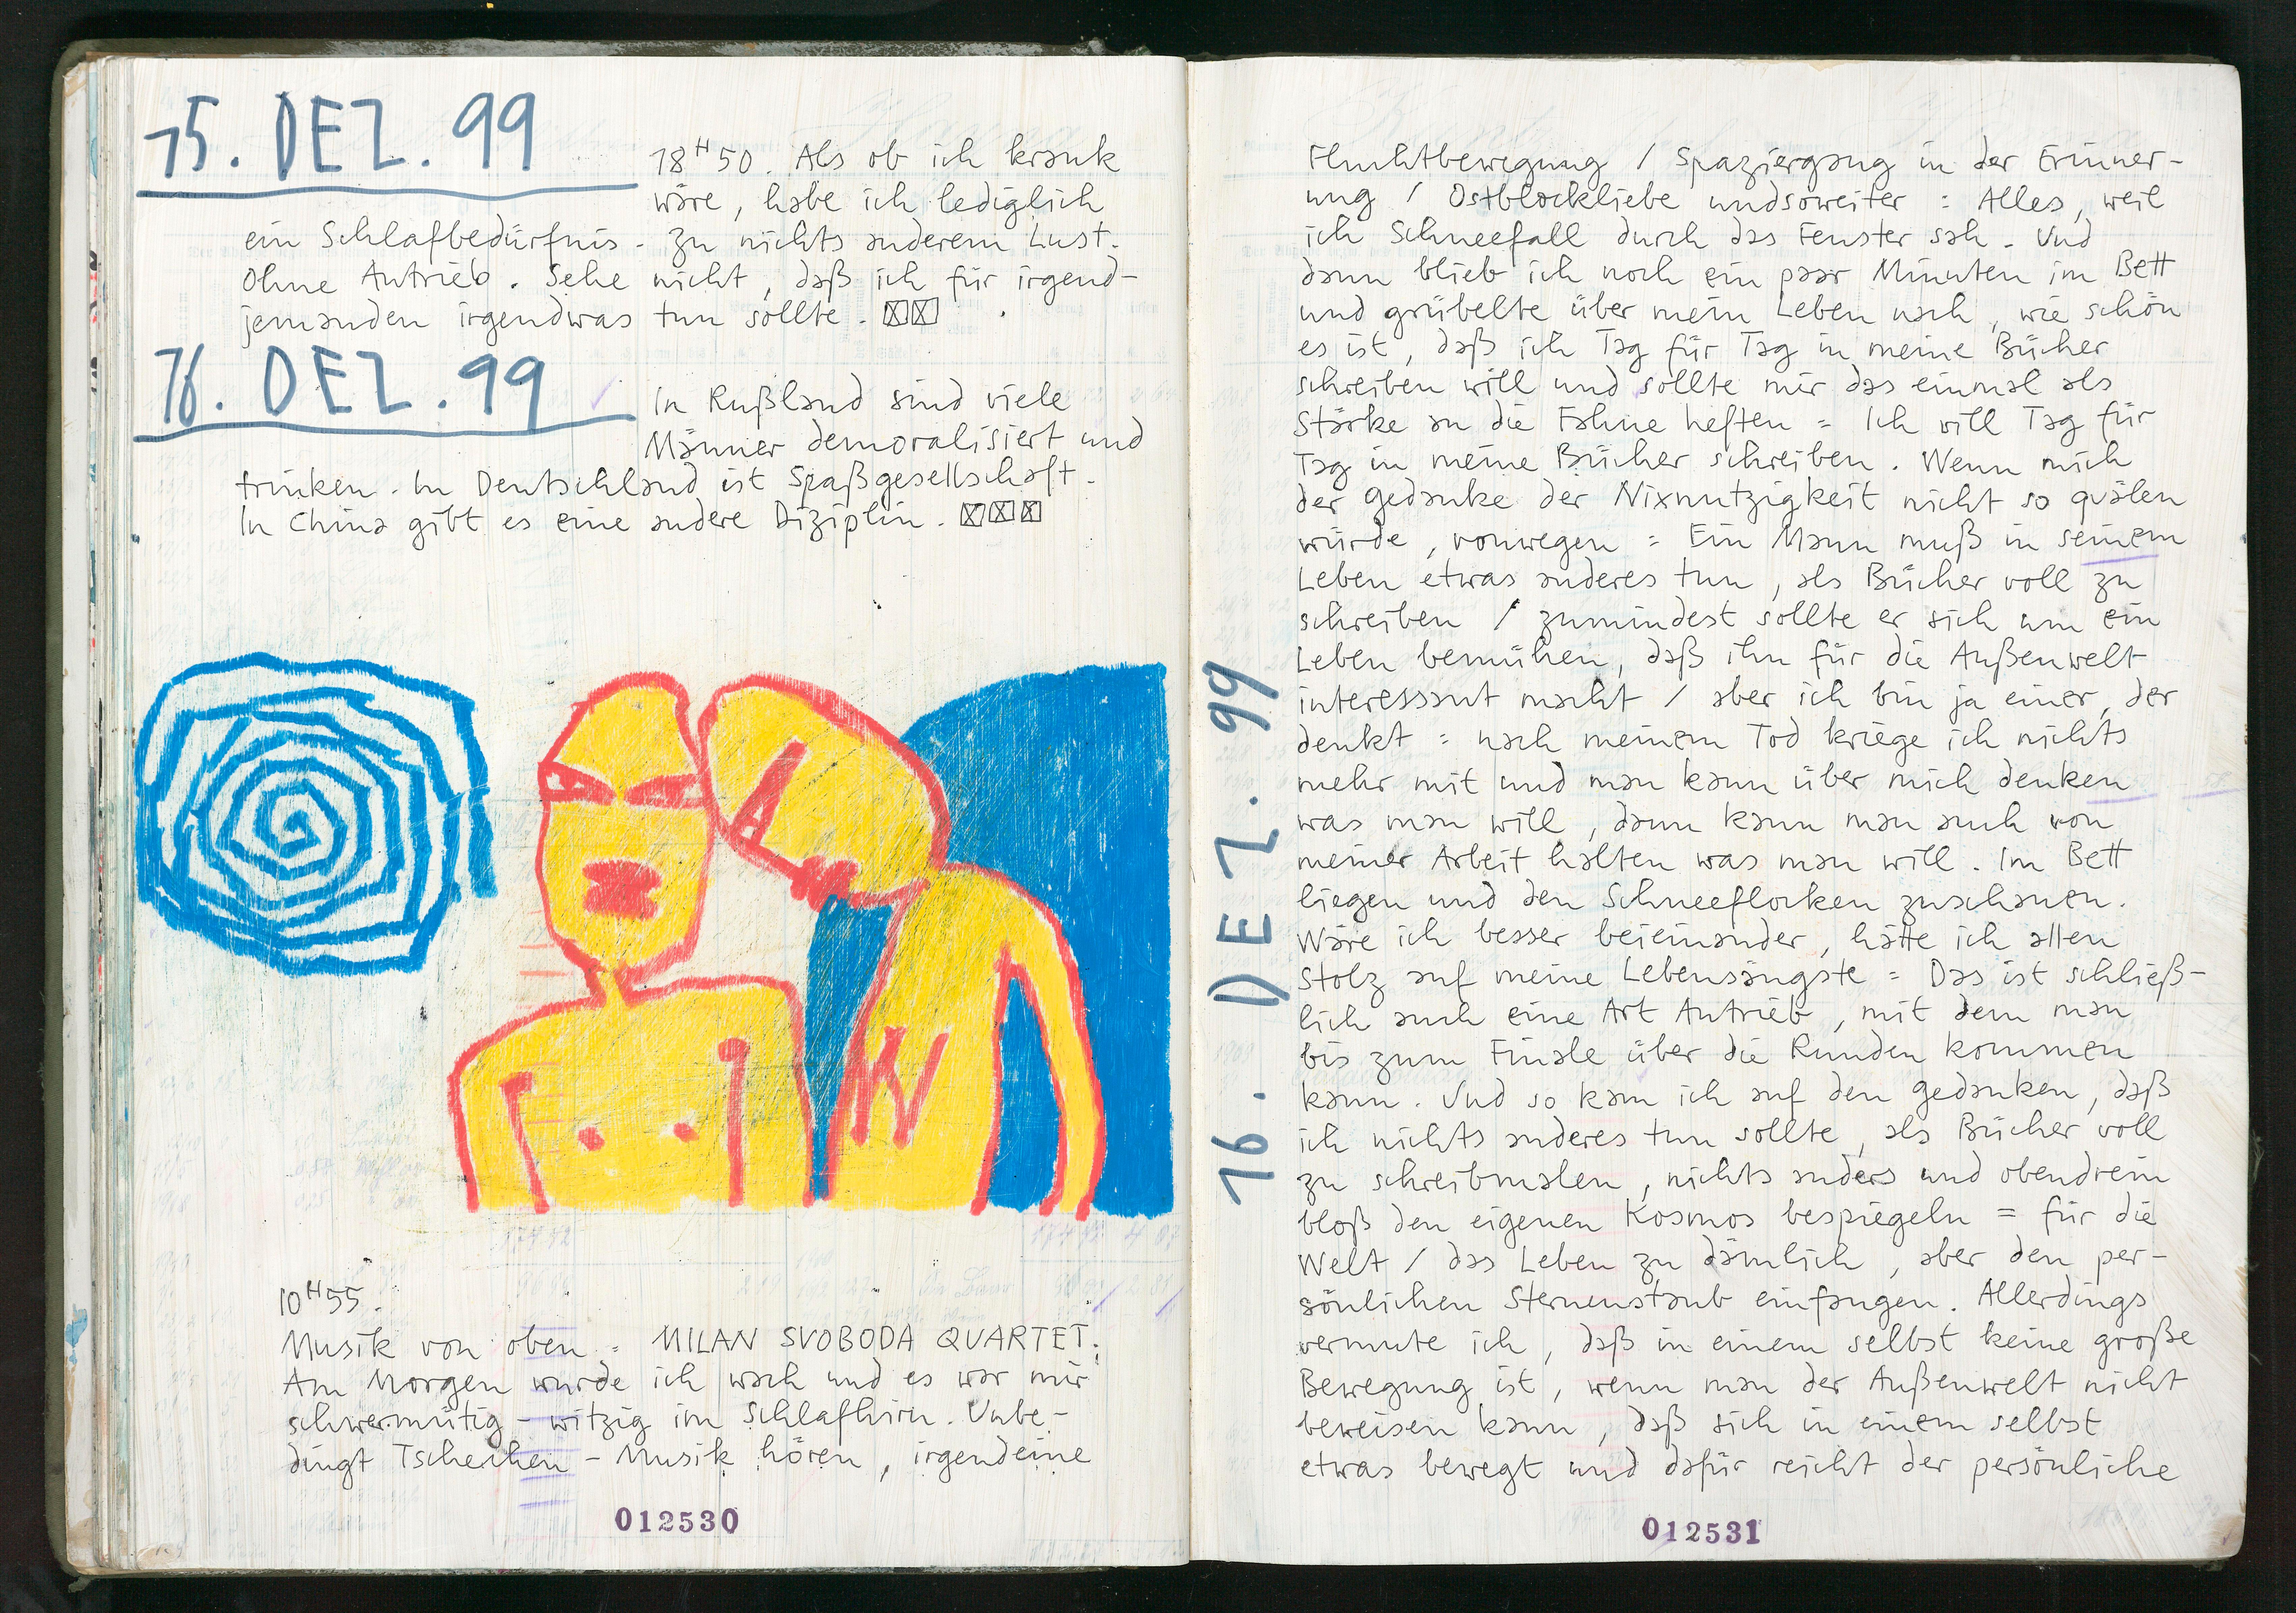 15. DEZ. 99
18H50. Als ob ich krank
wäre, habe ich lediglich
ein Schlafbedürfnis. Zu nichts anderem Lust.
Ohne Antrieb. Sehe nicht, daß ich für irgend-
jemanden irgendwas tun sollte.
16. DEZ. 99
In Rußland sind viele
Männer demoralisiert und
trinken. In Deutschland ist Spaßgesellschaft.
In China gibt es eine andere Diziplin.
10H55.
Musik von oben = MILAN SVOBODA QUARTET.
Am Morgen wurde ich wach und es war mir
schwermütig-witzig im Schlafhirn. Unbe-
dingt Tschechen-Musik hören, irgendeine
012530
16. DEZ. 99
Fluchtbewegung / Spaziergang in der Erinner-
ung / Ostblockliebe undsoweiter = Alles, weil
ich Schneefall durch das Fenster sah. Und
dann blieb ich noch ein paar Minuten im Bett
und grübelte über mein Leben nach, wie schön
es ist, daß ich Tag für Tag in meine Bücher
schreiben will und sollte mir das einmal als
Stärke an die Fahne heften = Ich will Tag für
Tag in meine Bücher schreiben. Wenn mich
der Gedanke der Nixnutzigkeit nicht so quälen
würde, vonwegen = Ein Mann muß in seinem
Leben etwas anderes tun, als Bücher voll zu
schreiben / zumindest sollte er sich um ein
Leben bemühen, daß ihn für die Außenwelt
interessant macht / aber ich bin ja einer, der
denkt = nach meinem Tod kriege ich nichts
mehr mit und man kann über mich denken
was man will, dann kann man auch von
meiner Arbeit halten was man will. Im Bett
liegen und den Schneeflocken zuschauen.
Wäre ich besser beieinander, hätte ich allen
Stolz auf meine Lebensängste = Das ist schließ-
lich auch eine Art Antrieb, mit dem man
bis zum Finale über die Runden kommen
kann. Und so kam ich auf den Gedanken, daß
ich nichts anderes tun sollte, als Bücher voll
zu schreibmalen, nichts anders und obendrein
bloß den eigenen Kosmos bespiegeln = für die
Welt / das Leben zu dämlich, aber den per-
sönlichen Sternenstaub einfangen. Allerdings
vermute ich, daß in einem selbst keine große
Bewegung ist, wenn man der Außenwelt nicht
beweisen kann, daß sich in einem selbst
etwas bewegt und dafür reicht der persönliche
012531